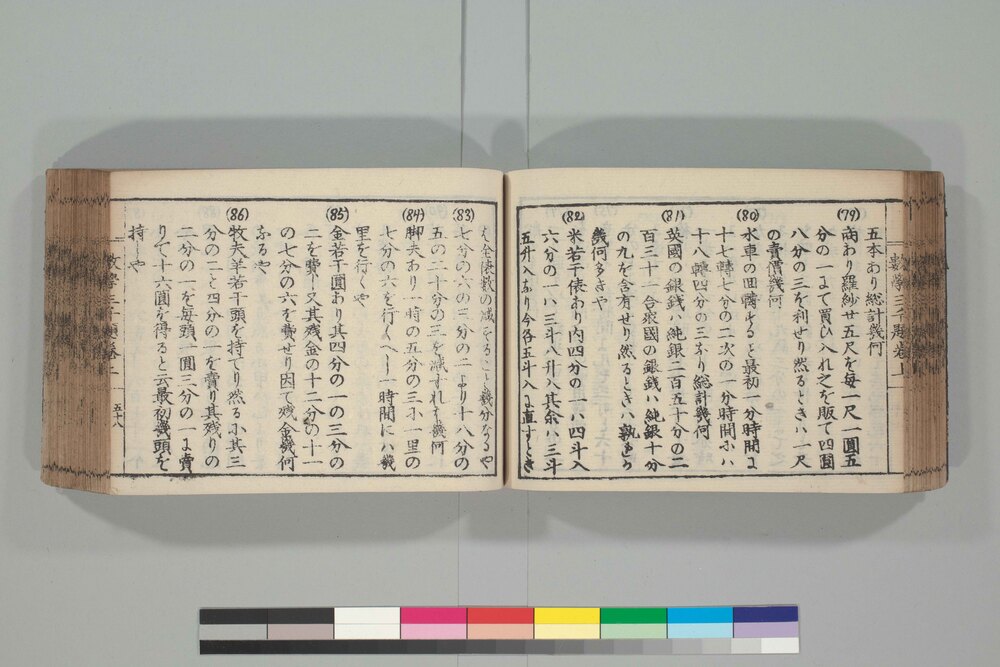 五本あり総計幾何
(79)
商あり羅紗廿五尺を毎一尺一圓五
分の一にて買ひ入れ之を販て四圓
八分の三を利せり然るときハ一尺
の賣價幾何
(80)
水車の回轉すると最初一分時間に
十七轉七分の二次の一分時間にハ
十八轉四分の三なり総計幾何
(81)
英國の銀銭ハ純銀二百五十分の二
百三十一合衆國の銀銭ハ純銀十分
の九を含有せり然るときハ孰れが
幾何多きや
(82)
米若干俵あり内四分の一ハ四斗入
六分の一ハ三斗八升入其余ハ三斗
五升入なり今各五斗入に直すとき
ハ全俵数の減ずること幾分なるや
(83)
七分の六の三分の二より十八分の
五の二十分の三を減ずれバ幾何
(84)
脚夫あり一時の五分の三に一里の
七分の六を行くべし一時間にハ幾
里を行くや
(85)
金若干圓あり其四分の一の三分の
二を費し又其残金の十二分の十一
の七分の六を費せり因て残金幾何
なるや
(86)
牧夫羊若干頭を持てり然るに其三
分の二と四分の一を賣り其残りの
二分の一を毎頭一圓三分の一に賣
りて十六圓を得ると云最初幾頭を
持しや
五十八